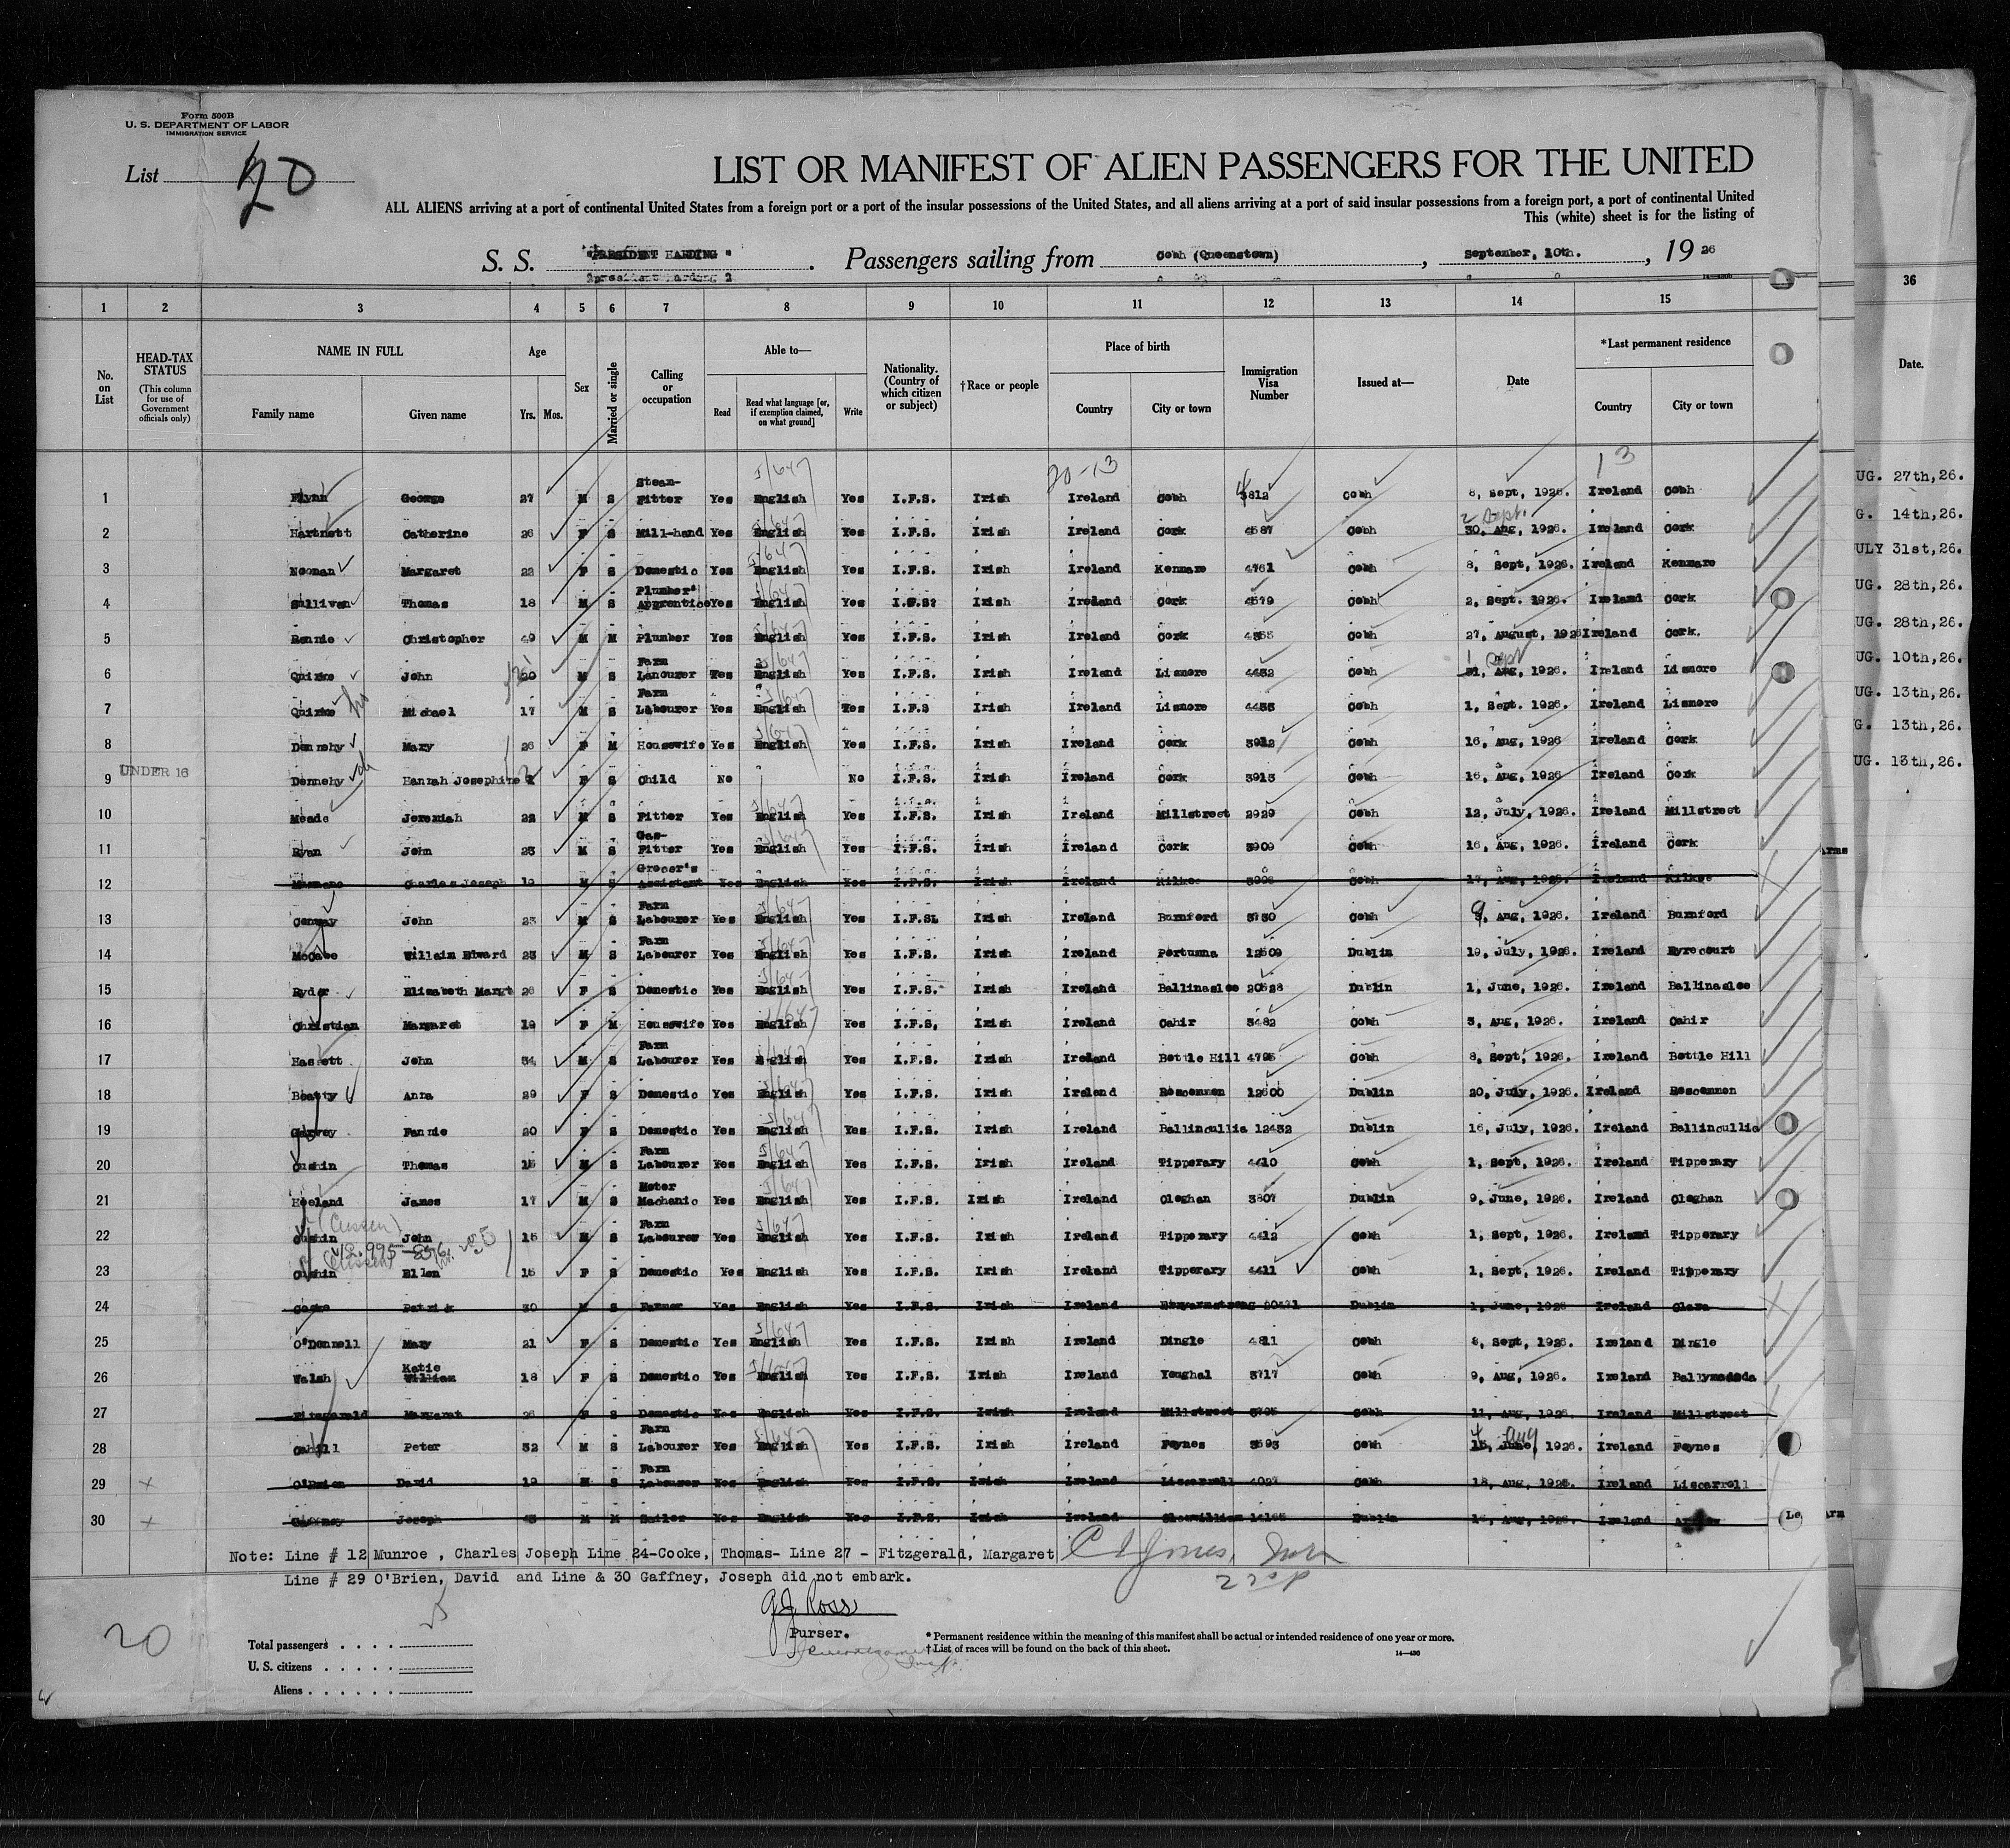 Form 500B
U. S. DEPARTMENT OF LABOR
IMMIGRATION SERVICE
List 20
LIST OR MANIFEST OF ALIEN PASSENGERS FOR THE UNITED
ALL ALIENS arriving at a port of continental United States from a foreign port or a port of the insular possessions of the United States, and all aliens arriving at a port of said insular possessions from a foreign port, a port of continental United
This (white) sheet is for the listing of
S. S. "PRESIDENT HARDING" . Passengers sailing from Cobh (Queenstown) , September, 10th. , 19 26
1 2 3 4 5 6 7 8 9 10 11 12 13 14 15 36
No. on List
HEAD-TAX STATUS
(This column for use of Government officials only)
NAME IN FULL
Family name Given name
Age
Yrs. Mos.
Sex
Married or single
Calling or occupation
Able to—
Read
Read what language [or, if exemption claimed, on what ground]
Write
Nationality. (Country of which citizen or subject)
†Race or people
Place of birth
Country City or town
Immigration Visa Number
Issued at—
Date
*Last permanent residence
Country City or town
Date.
20-13 13
1 Flynn George 27 M S Steam-Fitter Yes English Yes I.F.S. Irish Ireland Cobh 4812 Cobh 8, Sept, 1926. Ireland Cobh
2 Hartnett Catherine 26 F S Mill-hand Yes English Yes I.F.S. Irish Ireland Cork 4587 Cobh 2 Sept. 30, Aug, 1926. Ireland Cork
3 Noonan Margaret 22 F S Domestic Yes English Yes I.F.S. Irish Ireland Kenmare 4761 Cobh 8, Sept, 1926. Ireland Kenmare
4 Sullivan Thomas 18 M S Plumber' Apprentice Yes English Yes Irish Ireland Cork 4579 Cobh 2, Sept. 1926. Ireland Cork
5 Rennie Christopher 49 M M Plumber Yes English Yes I.F.S. Irish Ireland Cork Cobh 27, August, 192 Ireland Cork.
6 Quirke John 20 M S Farm Lanourer Yes English Yes I.F.S. Irish Ireland Lismore 4432 Cobh 1 Sept 31, Aug, 1926. Ireland Lismore
7 Quirke Michael 17 M S Farm Labourer Yes English Yes I.F.S Irish Ireland Lismore 4433 Cobh 1, Sept. 1926. Ireland Lismore
8 Dennehy Mary 26 F M Housewife Yes English Yes I.F.S. Irish Ireland Cork 3912 Cobh 16, Aug, 1926 Ireland Cork
UNDER 16
9 Dennehy Hannah Josephine F S Child No No I.F.S. Irish Ireland Cork 3913 Cobh 16, Aug, 1926 Ireland Cork
10 Meade Jeremiah 22 M S Fitter Yes English Yes I.F.S. Irish Ireland Millstreet 2929 Cobh 12, July, 1926. Ireland Millstreet
11 Ryan John 23 M S Gas-Fitter Yes English Yes I.F.S. Irish Ireland Cork 3909 Cobh 16, Aug, 1926. Ireland Cork
12 Charles Joseph 19 M S Grocer's Assistant Yes English Yes I.F.S. Irish Ireland Kilkee Cobh Aug, 1926. Ireland Kilkee
13 Conway John 23 M S Farm Labourer Yes English Yes Irish Ireland Burnford 3730 Cobh 9, Aug, 1926. Ireland Burnford
14 McCabe Willaim Edward 23 M S Farm Labourer Yes English Yes I.F.S. Irish Ireland Portumna 12509 Dublin 19, July, 1926. Ireland Eyrecourt
15 Ryder Elizabeth Margt 26 F S Domestic Yes English Yes I.F.S. Irish Ireland Ballinaslee 20528 Dublin 1, June, 1926. Ireland Ballinaslee
16 Christian Margaret 19 F M Housewife Yes English Yes I.F.S. Irish Ireland Cahir 3482 Cobh 3, Aug, 1926. Ireland Cahir
17 Hassett John 34 M S Farm Labourer Yes English Yes I.F.S. Irish Ireland Bottle Hill 4795 Cobh 8, Sept, 1926. Ireland Bottle Hill
18 Beatty Anna 29 F S Domestic Yes English Yes I.F.S. Irish Ireland Roscommon 12600 Dublin 20, July, 1926. Ireland Roscommon
19 Garvey Fannie 20 F S Domestic Yes English Yes I.F.S. Irish Ireland Ballincullia 12432 Dublin 16, July, 1926. Ireland Ballincullia
20 Cushin Thomas 15 M S Farm Labourer Yes English Yes I.F.S. Irish Ireland Tipperary 4410 Cobh 1, Sept, 1926. Ireland Tipperary
21 Hoeland James 17 M S Motor Machanic Yes English Yes I.F.S. Irish Ireland Cloghan 3807 Dublin 9, June, 1926. Ireland Cloghan
(Cussen)
22 Cushin John 15 M S Farm Labourer Yes English Yes I.F.S. Irish Ireland Tipperary 4412 Cobh 1, Sept, 1926. Ireland Tipperary
(Cussen)
23 Cushin Ellen 15 F S Domestic Yes English Yes I.F.S. Irish Ireland Tipperary 4411 Cobh 1, Sept, 1926. Ireland Tipperary
24 Patrick 30 M S Farmer Yes English Yes I.F.S. Irish Ireland 20471 Dublin 1, June, 1926 Ireland Clara
25 O'Donnell Mary 21 F S Domestic Yes English Yes I.F.S. Irish Ireland Dingle 4811 Cobh 8, Sept, 1926. Ireland Dingle
26 Walsh Katie William 18 F S Domestic Yes English Yes I.F.S. Irish Ireland Youghal 3717 Cobh 9, Aug, 1926. Ireland Ballymadoda
27 Fitzgerald Margaret 26 F S Domestic Yes English Yes I.F.S. Irish Ireland Millstreet 3795 Cobh 11, Aug, 1926. Ireland Millstreet
28 Cahill Peter 32 M S Farm Labourer Yes English Yes I.F.S. Irish Ireland Foynes 3593 Cobh 4 Aug 15, June, 1926. Ireland Foynes
29 O'Brien David 19 M S Farm Labourer Yes English Yes I.F.S. Irish Ireland Liscarroll 4027 Cobh 18, Aug, 1926. Ireland Liscarroll
30 Gaffney Joseph 43 M M Sailor Yes English Yes I.F.S. Irish Ireland Dublin Aug, 1926. Ireland
UG. 27th,26.
G. 14th,26.
ULY 31st,26.
UG. 28th,26.
UG. 28th,26.
UG. 10th,26.
UG. 13th,26.
G. 13th,26.
UG. 13th,26.
Note: Line # 12 Munroe , Charles Joseph Line 24-Cooke, Thomas- Line 27 - Fitzgerald, Margaret
Line # 29 O'Brien, David and Line & 30 Gaffney, Joseph did not embark.
20
G J Ross
Purser.
Total passengers
U. S. citizens
Aliens
* Permanent residence within the meaning of this manifest shall be actual or intended residence of one year or more.
† List of races will be found on the back of this sheet.
14—430